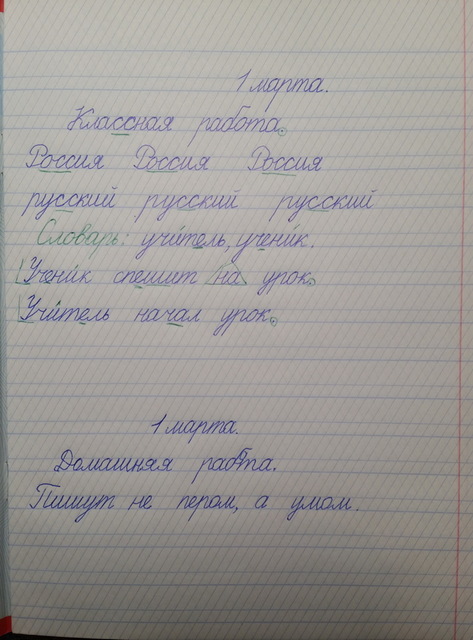 1 марта.
Классная работа.
Россия Россия Россия
русский русский русский
Словарь: учи́тель, учени́к.
Учени́к спешит на урок.
Учи́тель начал урок.
1 марта.
Домашняя работа.
Пишут не пером, а умом.